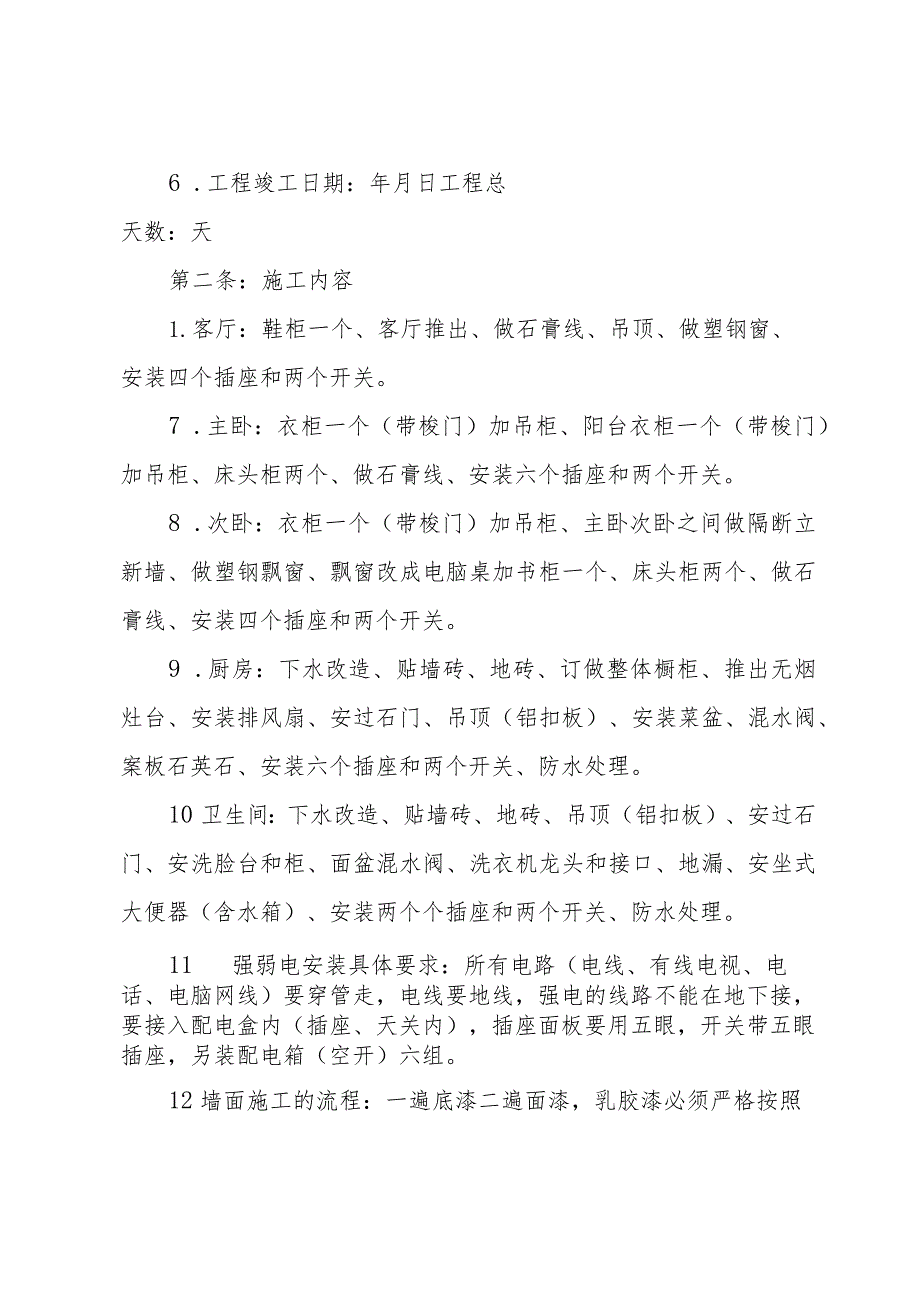 6 .工程竣工日期：年月日工程总
天数：天
第二条：施工内容
1.客厅：鞋柜一个、客厅推出、做石膏线、吊顶、做塑钢窗、
安装四个插座和两个开关。
7 .主卧：衣柜一个（带梭门）加吊柜、阳台衣柜一个（带梭门）
加吊柜、床头柜两个、做石膏线、安装六个插座和两个开关。
8 .次卧：衣柜一个（带梭门）加吊柜、主卧次卧之间做隔断立
新墙、做塑钢飘窗、飘窗改成电脑桌加书柜一个、床头柜两个、做石
膏线、安装四个插座和两个开关。
9 .厨房：下水改造、贴墙砖、地砖、订做整体橱柜、推出无烟
灶台、安装排风扇、安过石门、吊顶（铝扣板）、安装菜盆、混水阀、
案板石英石、安装六个插座和两个开关、防水处理。
10 卫生间：下水改造、贴墙砖、地砖、吊顶（铝扣板）、安过石
门、安洗脸台和柜、面盆混水阀、洗衣机龙头和接口、地漏、安坐式
大便器（含水箱）、安装两个个插座和两个开关、防水处理。
11 强弱电安装具体要求：所有电路（电线、有线电视、电
话、电脑网线）要穿管走，电线要地线，强电的线路不能在地下接，
要接入配电盒内（插座、天关内），插座面板要用五眼，开关带五眼
插座，另装配电箱（空开）六组。
12 墙面施工的流程：一遍底漆二遍面漆，乳胶漆必须严格按照